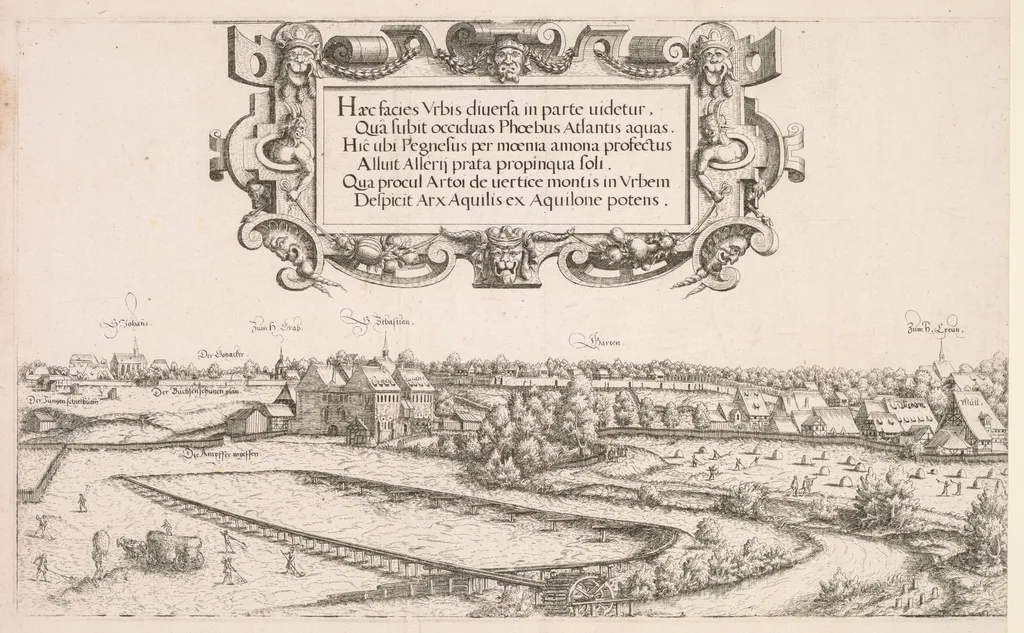 Hæc facies Vrbis diuerſa in parte uidetur,
Quâ ſubit occiduas Phœbus Atlantis aquas.
Hîc ubi Pegneſus per mœnia amœna profectus
Alluit Allerij prata propinqua ſoli.
Qua procul Artoi de uertice montis in Vrbem
Deſpicit Arx Aquilis ex Aquilone potens.
S. Johans.
Zum H. Grab.
S. Sebaſtian.
Garten.
Zum H. Creütz.
Der
Der Büchſenſchützen plan
Der Jungen ſchießhütten
Müll
Die